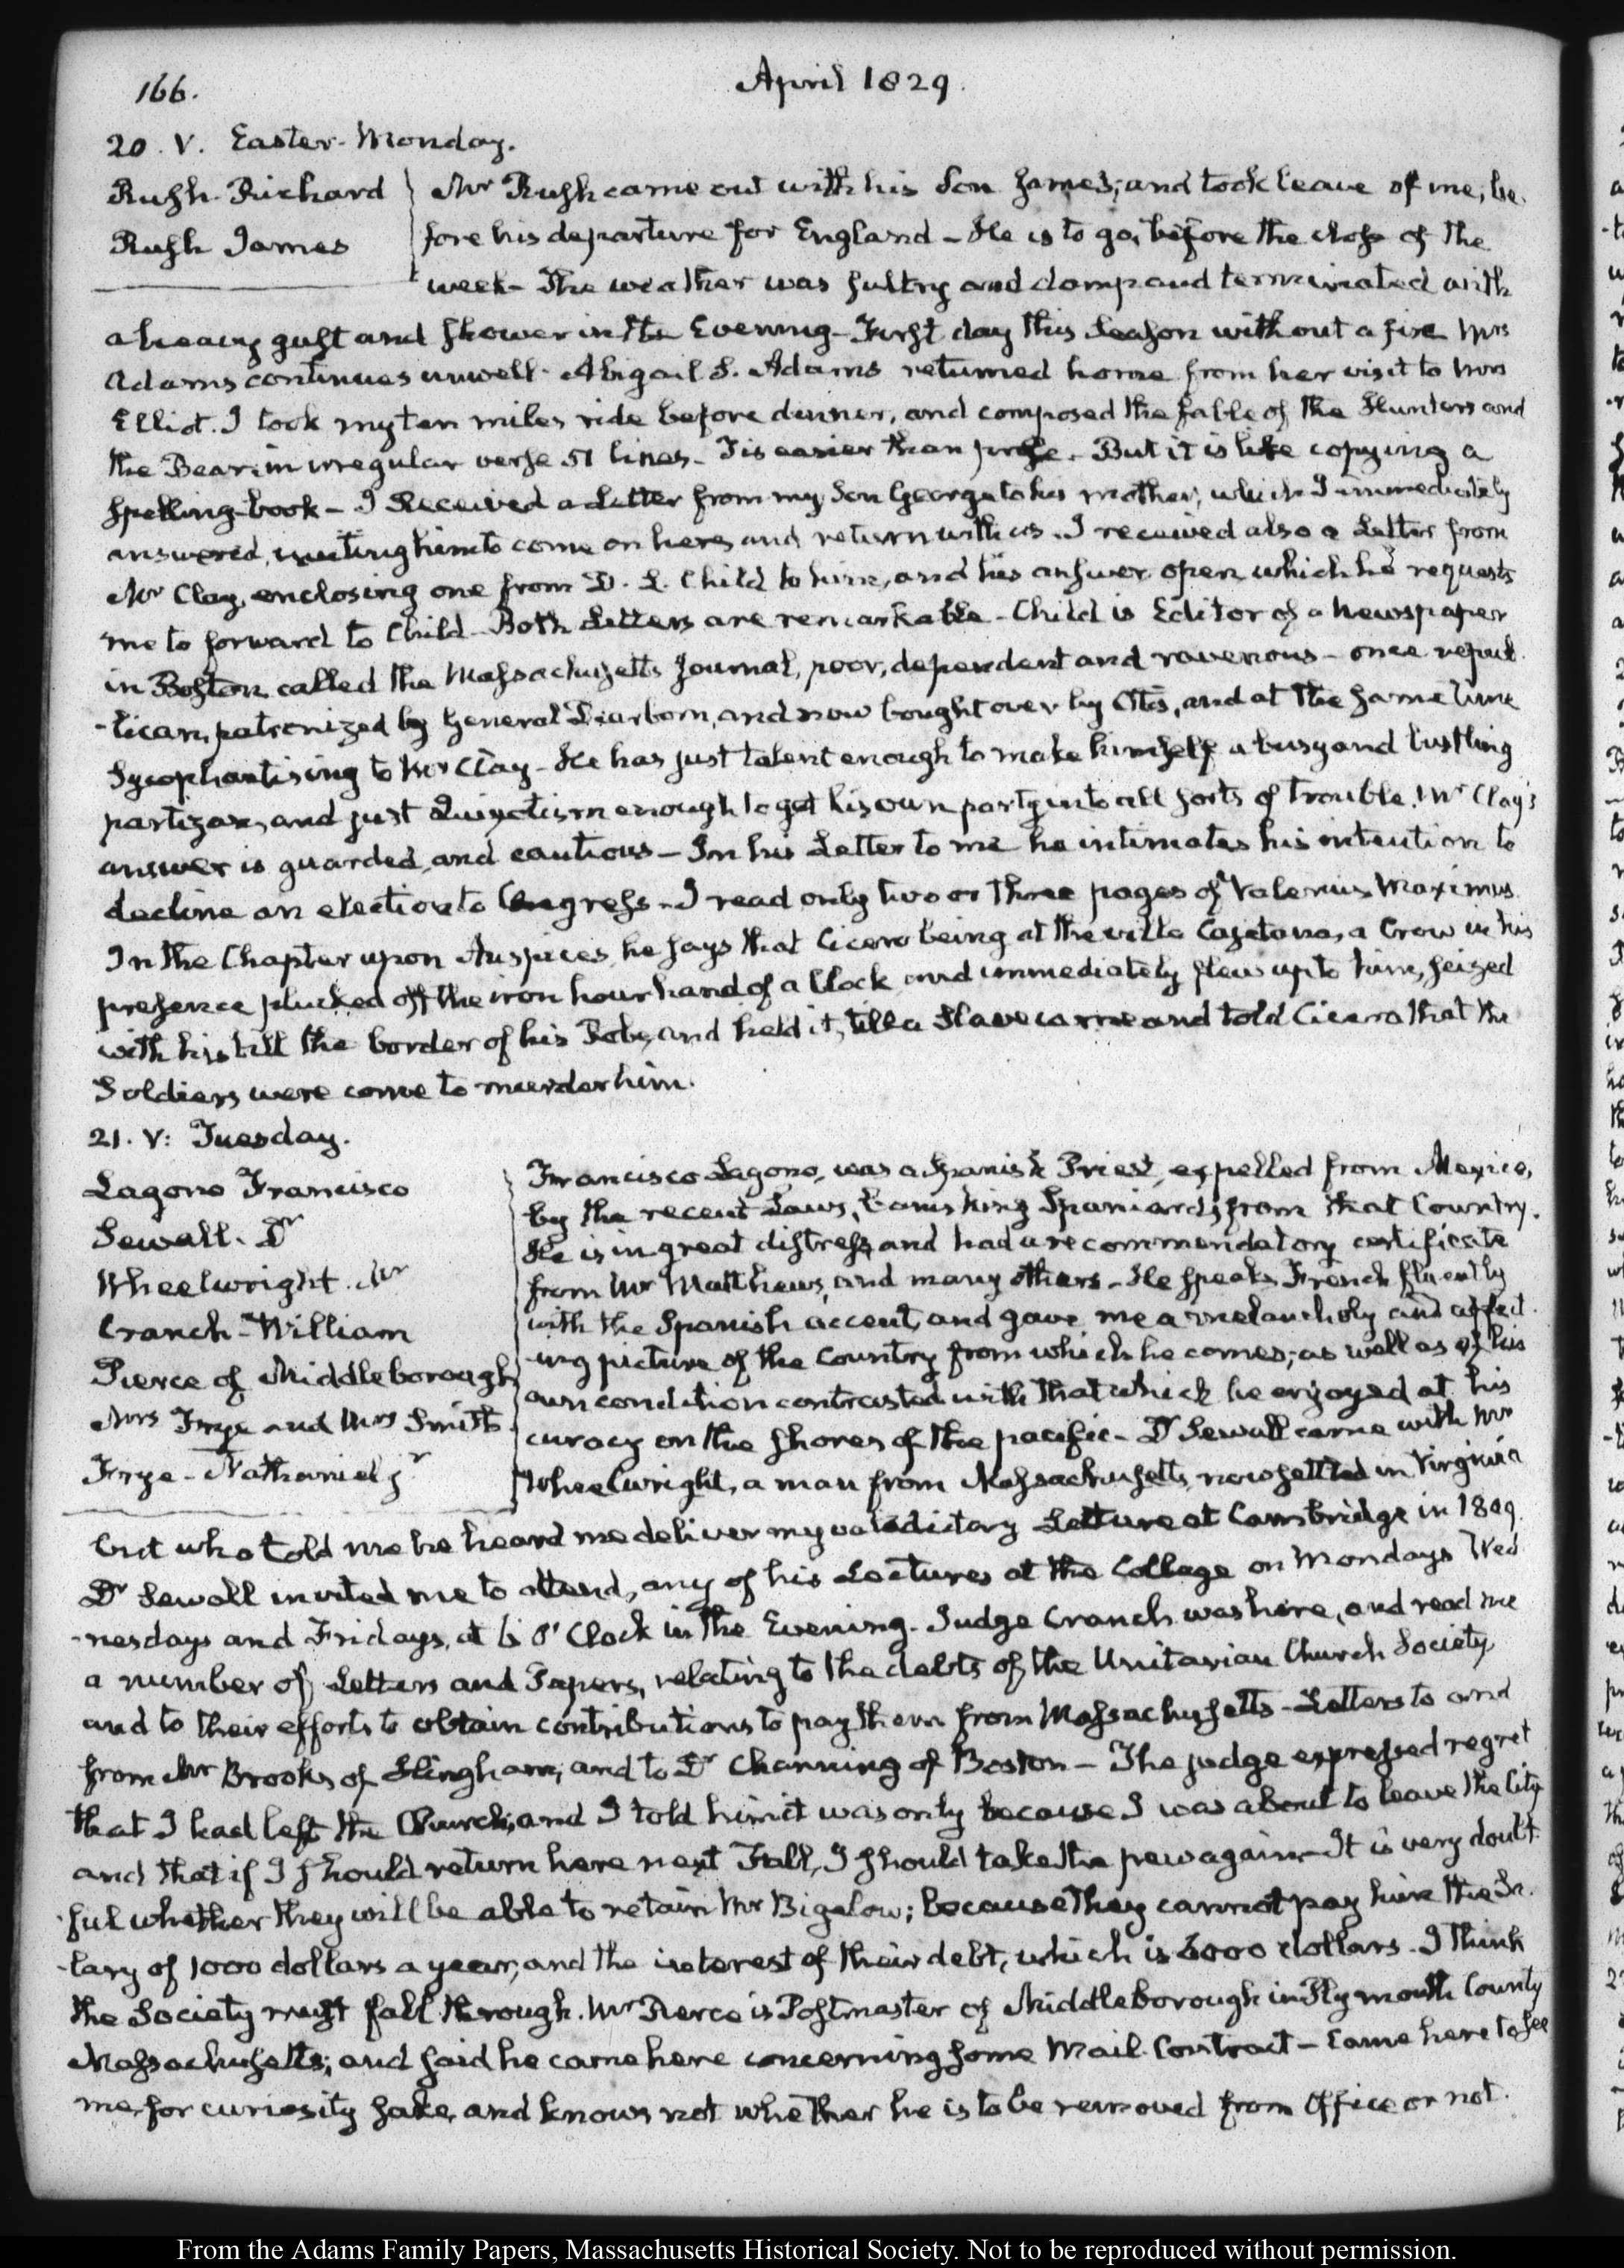 166.
April 1829.
20. V. Easter-Monday.
Rush Richard
Rush James
Mr Rush came out with his Son James, and took leave of me, be-
fore his departure for England – He is to go, before the close of the
week – The weather was sultry and damp and terminated with
a heavy gust and shower in the Evening – First day this Season without a fire Mrs
Adams continues unwell – Abigail S. Adams returned home from her visit to Mrs
Elliot. I took my ten miles ride before dinner, and composed the fable of the Hunters and
the Bear in irregular verse 51 lines – Tis easier than prose – But it is like copying a
spelling-book – I Received a Letter from my Son George to his mother, which I immediately
answered, inviting him to come on here, and return with us. I received also a Letter from
Mr Clay, enclosing one from D. L. Child to him, and his answer open which he requests
me to forward to Child – Both Letters are remarkable – Child is Editor of a Newspaper
in Boston called the Massachusetts Journal, poor, dependent and ravenous – once repub-
-lican, patronized by General Dearborn, and now bought over by Otis, and at the same time
Sycophantising to Mr Clay – He has just talent enough to make himself a busy and bustling
partizan, and just Quixotism enough to get his own party into all sorts of trouble. Mr Clay's
answer is guarded, and cautious – In his Letter to me he intimates his intention to
decline an election to Congress – I read only two or three pages of Valerius Maximus.
In the Chapter upon Auspices, he says that Cicero being at the villa Cajetana, a Crow in his
presence plucked off the iron hour hand of a Clock and immediately flew up to him, seized
with his bill the border of his Robe, and held it, till a Slave came and told Cicero that the
Soldiers were come to murder him.
21. V: Tuesday.
Lagono Francisco
Sewall. Dr
Wheelwright. Mr
Cranch – William
Pierce of Middleborough
Mrs Frye and Mrs Smith
Frye – Nathaniel jr
Francisco Lagono, was a Spanish Priest, expelled from Mexico,
by the recent Laws, banishing Spaniards from that Country.
He is in great distress, and had a recommendatory certificate
from Mr Matthews, and many others – He speaks French fluently
with the Spanish accent, and gave me a melancholy and affect-
-ing picture of the Country from which he comes; as well as of his
own condition contrasted with that which he enjoyed at his
curacy on the shores of the pacific – Dr Sewall came with Mr
Wheelwright, a man from Massachusetts, now settled in Virginia
but who told me he heard me deliver my valedictory Lecture at Cambridge in 1809.
Dr Sewall invited me to attend, any of his Lectures at the College on Mondays Wed-
-nesdays and Fridays, at 6 O'Clock in the Evening – Judge Cranch was here, and read me
a number of Letters and Papers, relating to the debts of the Unitarian Church Society
and to their efforts to obtain contributions to pay them from Massachusetts – Letters to and
from Mr Brooks of Hingham; and to Dr Channing of Boston – The judge expressed regret
that I had left the Church; and I told him it was only because I was about to leave the City
and that if I should return here next Fall, I should take the pew again – It is very doubt-
-ful whether they will be able to retain Mr Bigelow; because they cannot pay him the Sa-
-lary of 1000 dollars a year, and the interest of their debt, which is 6000 dollars. I think
the Society must fall through. Mr Pierce is Postmaster of Middleborough in Plymouth County
Massachusetts; and said he came here concerning some Mail Contract – Came here to see
me, for curiosity sake, and knows not whether he is to be removed from Office or not.
From the Adams Family Papers, Massachusetts Historical Society. Not to be reproduced without permission.